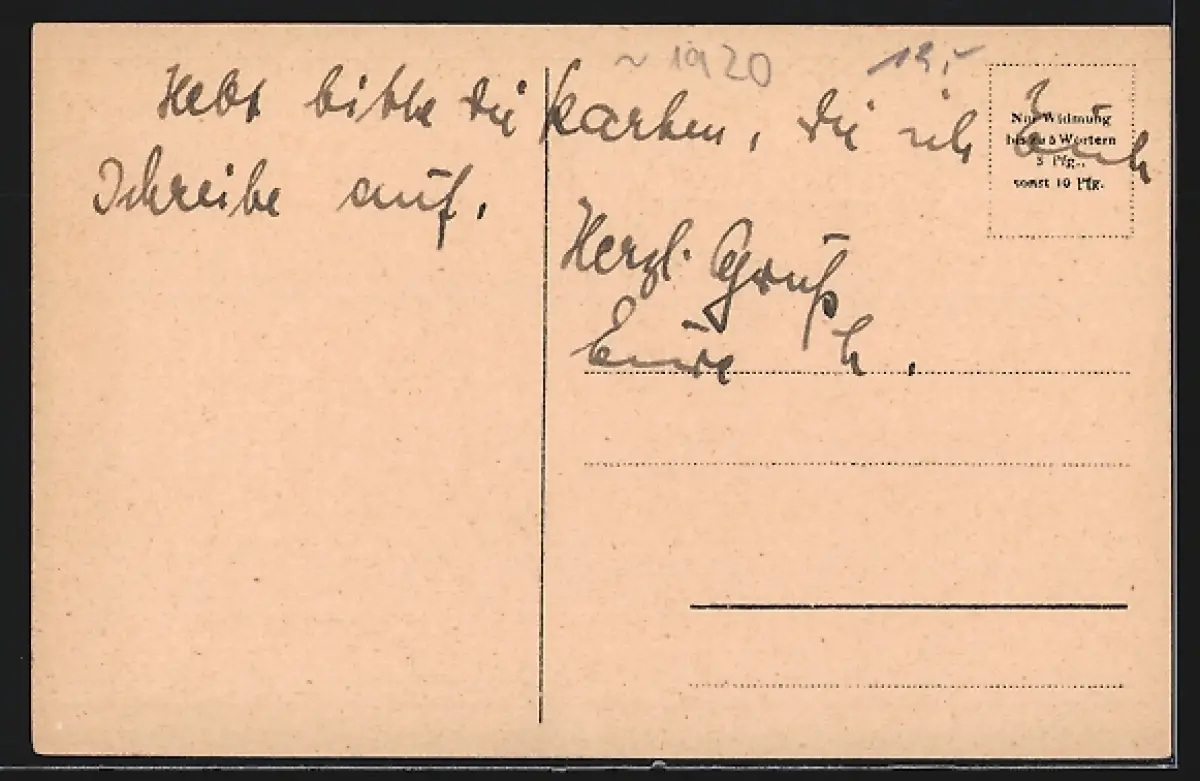 ~ 1920
12,-
Hebt bitte die Karten, die ich Euch
Schreibe auf.
Nur Widmung
bis zu 5 Wörtern
3 Pfg.,
sonst 10 Pfg.
Herzl. Gruß
Eure h.